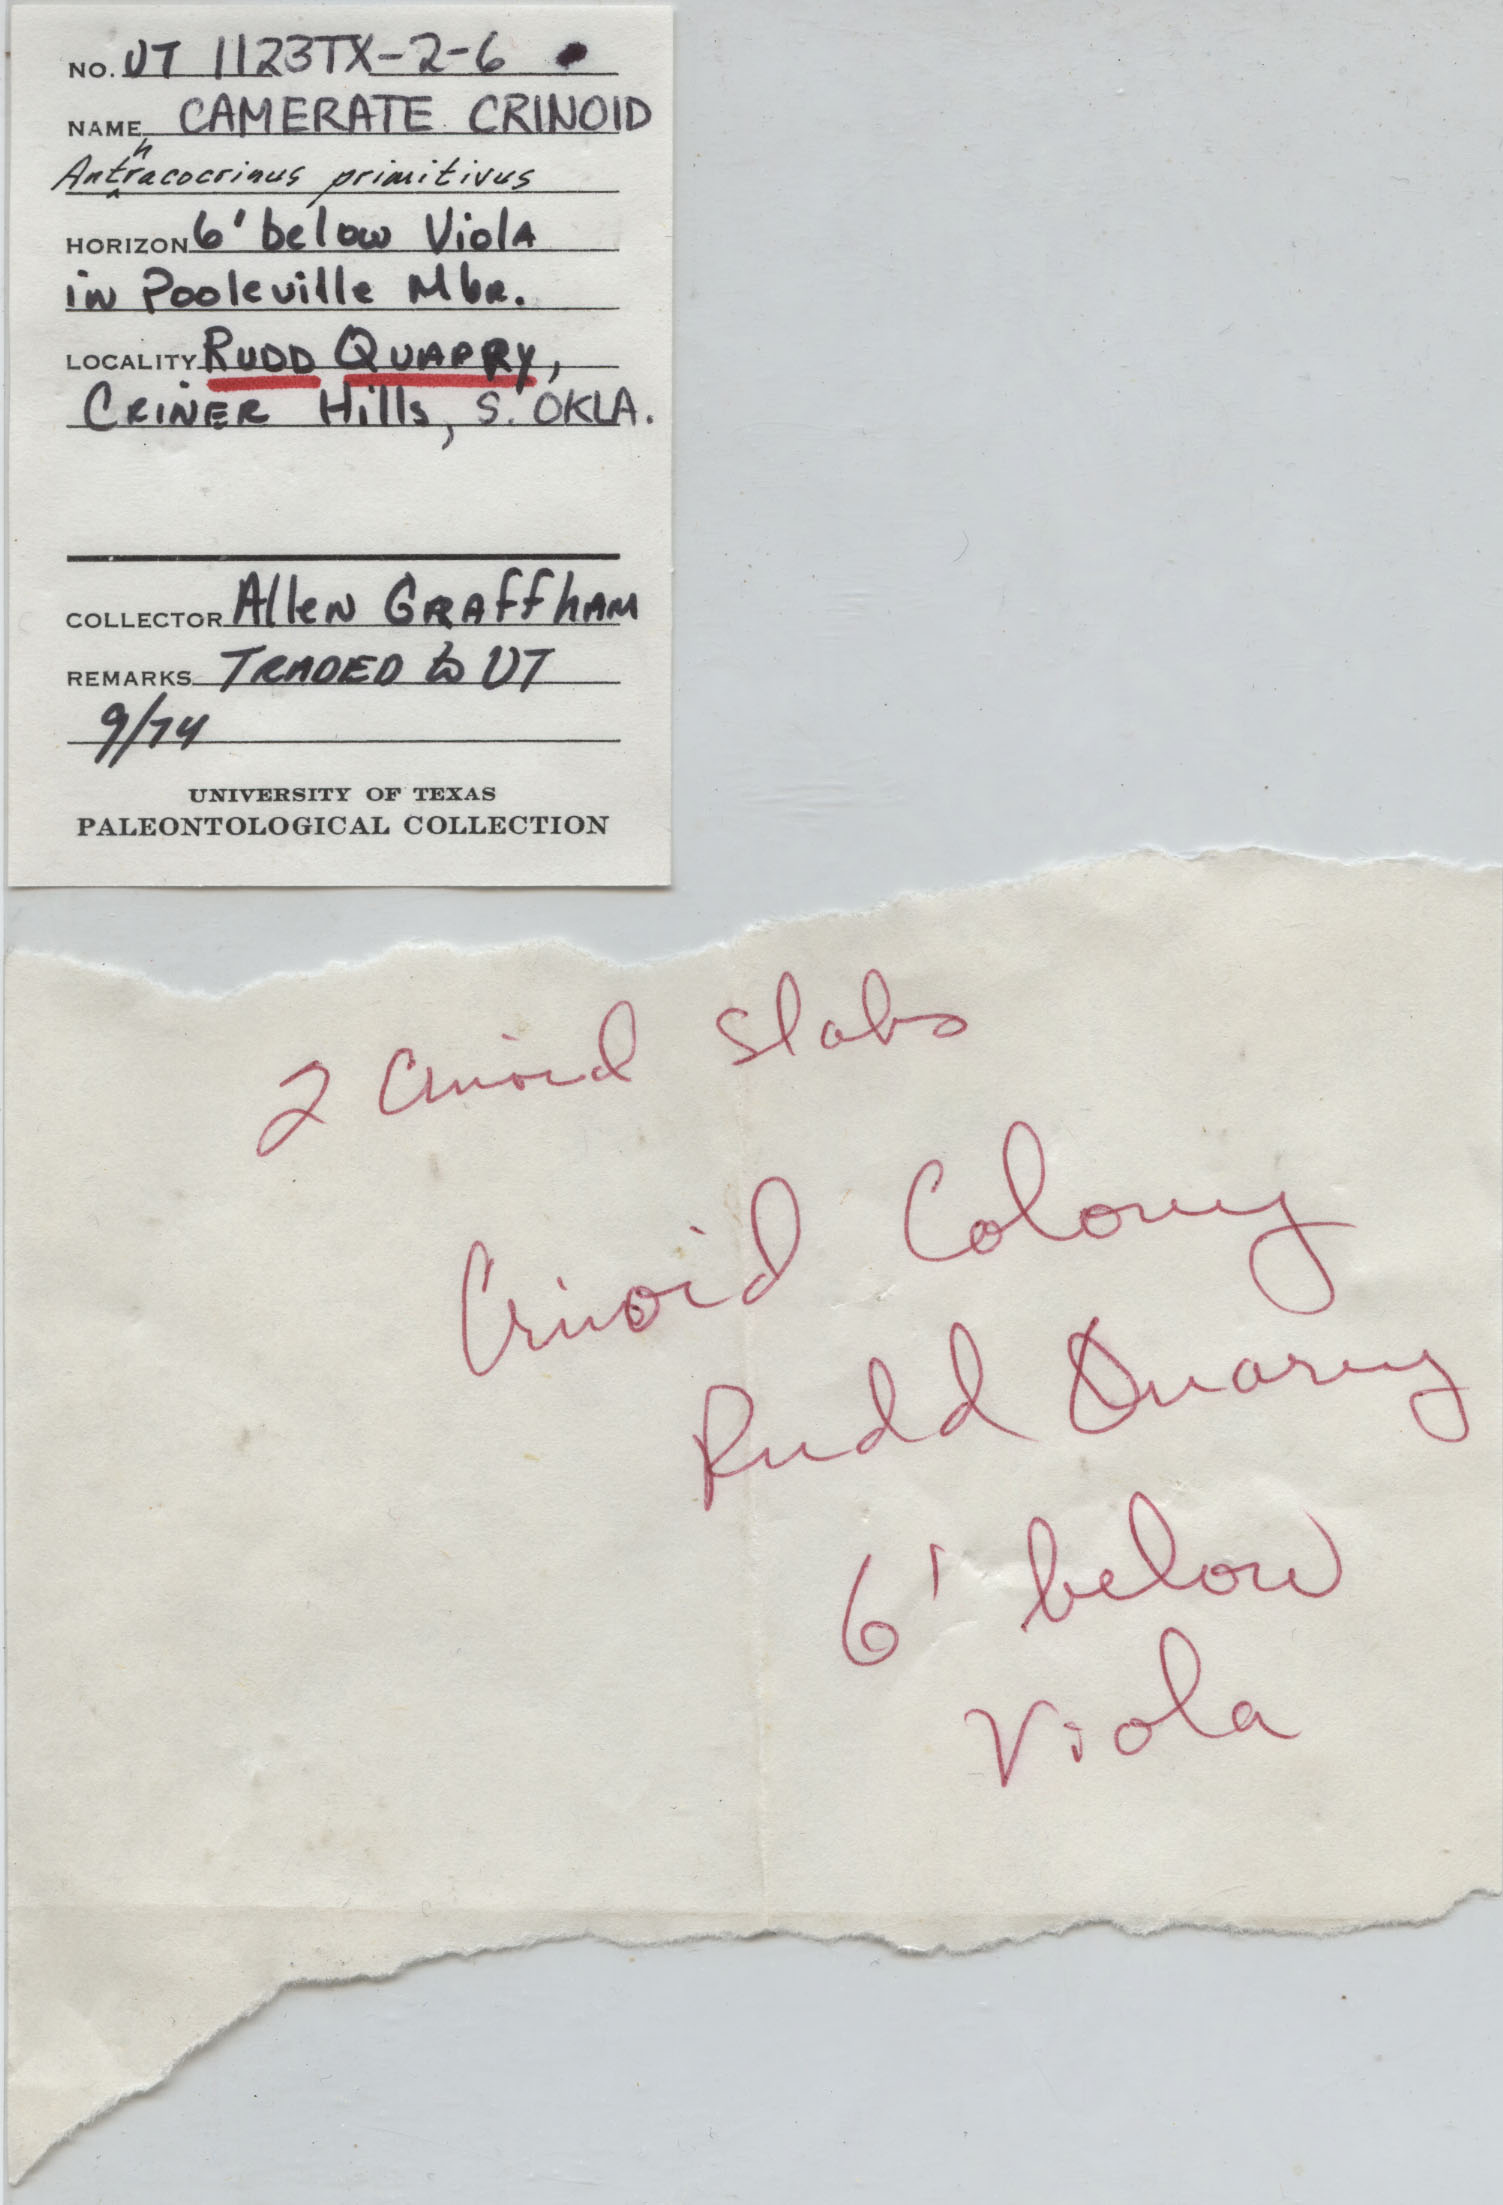 NO. UT 1123TX-2-6
NAME CAMERATE CRINOID
Anthracocrinus primitivus
HORIZON 6' below Viola
in Pooleville Mbr.
LOCALITY RUDD QUARRY,
CRINER Hills, S. OKLA.
COLLECTOR Allen GRAffhAM
REMARKS TRADED to UT
9/74
UNIVERSITY OF TEXAS
PALEONTOLOGICAL COLLECTION
2 Crinoid Slabs
Crinoid Colony
Rudd Quarry
6' below
Viola